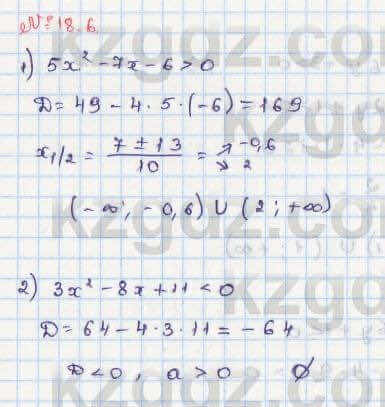 № 18.6
1) 5x² - 7x - 6 > 0
D = 49 - 4 · 5 · (-6) = 169
x₁/₂ = (7 ± 13)/10 = ↗ -0,6 ↘ 2
(-∞; -0,6) ∪ (2; +∞)
2) 3x² - 8x + 11 < 0
D = 64 - 4 · 3 · 11 = -64
D < 0, a > 0 ∅
kzgdz.com